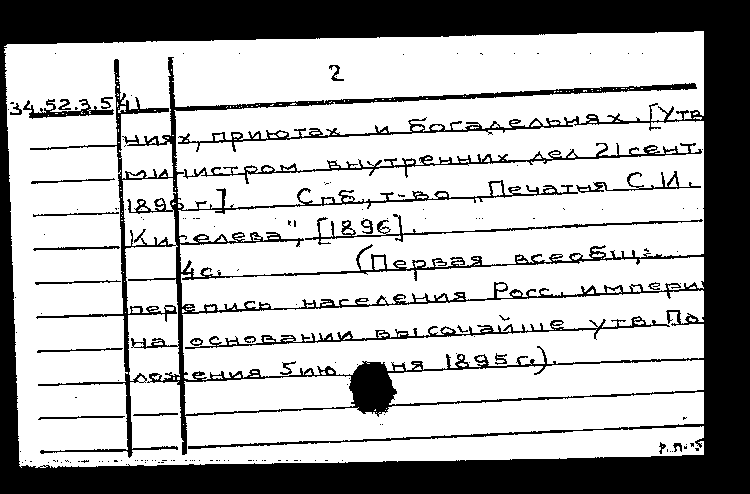 2
34.52.3.541
ниях, приютах и богадельнях. [Утв
министром внутренних дел 21 сент.
1896 г.]. Спб., т-во „Печатня С.И.
Киселева", [1896].
4с. (Первая всеобщ.
перепись населения Росс. импери
на основании высочайше утв. По-
ложения 5 июня 1895 г.).